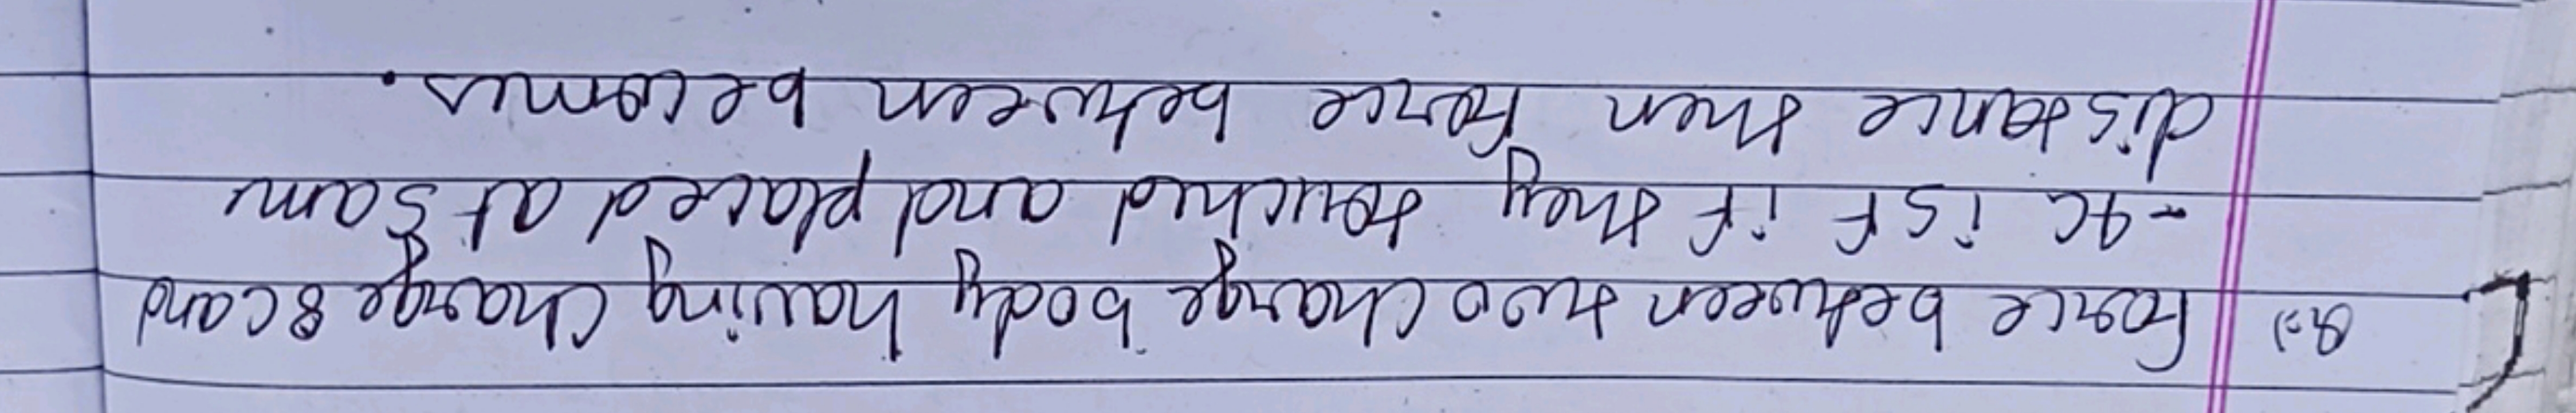 Q.:) Force between two charge body having charge 8c and
-4c is F if they touched and placed at same
distance then force between becomes.